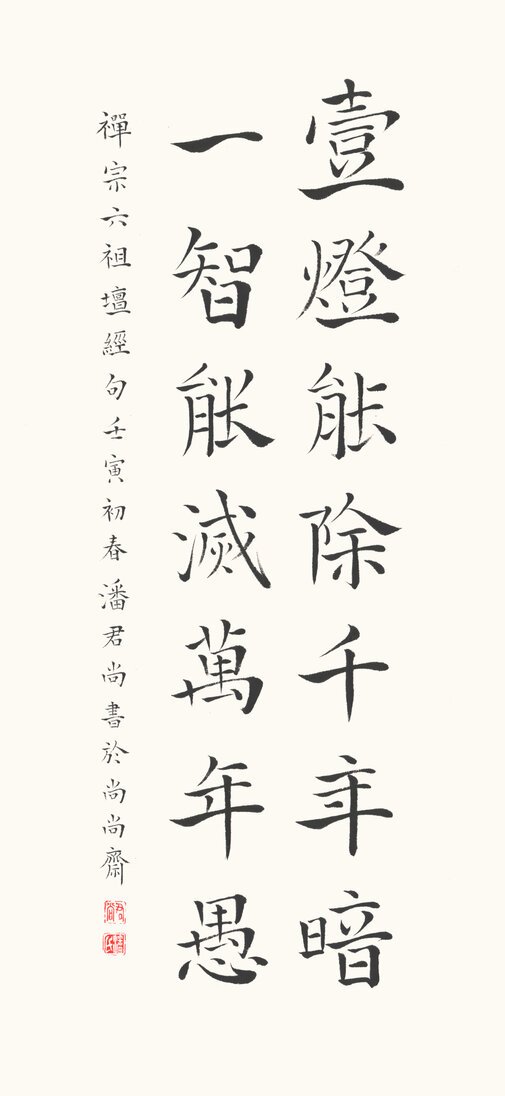 壹燈能除千年暗
一智能滅萬年愚
禪宗六祖壇經句壬寅初春潘君尚書於尚尚齋